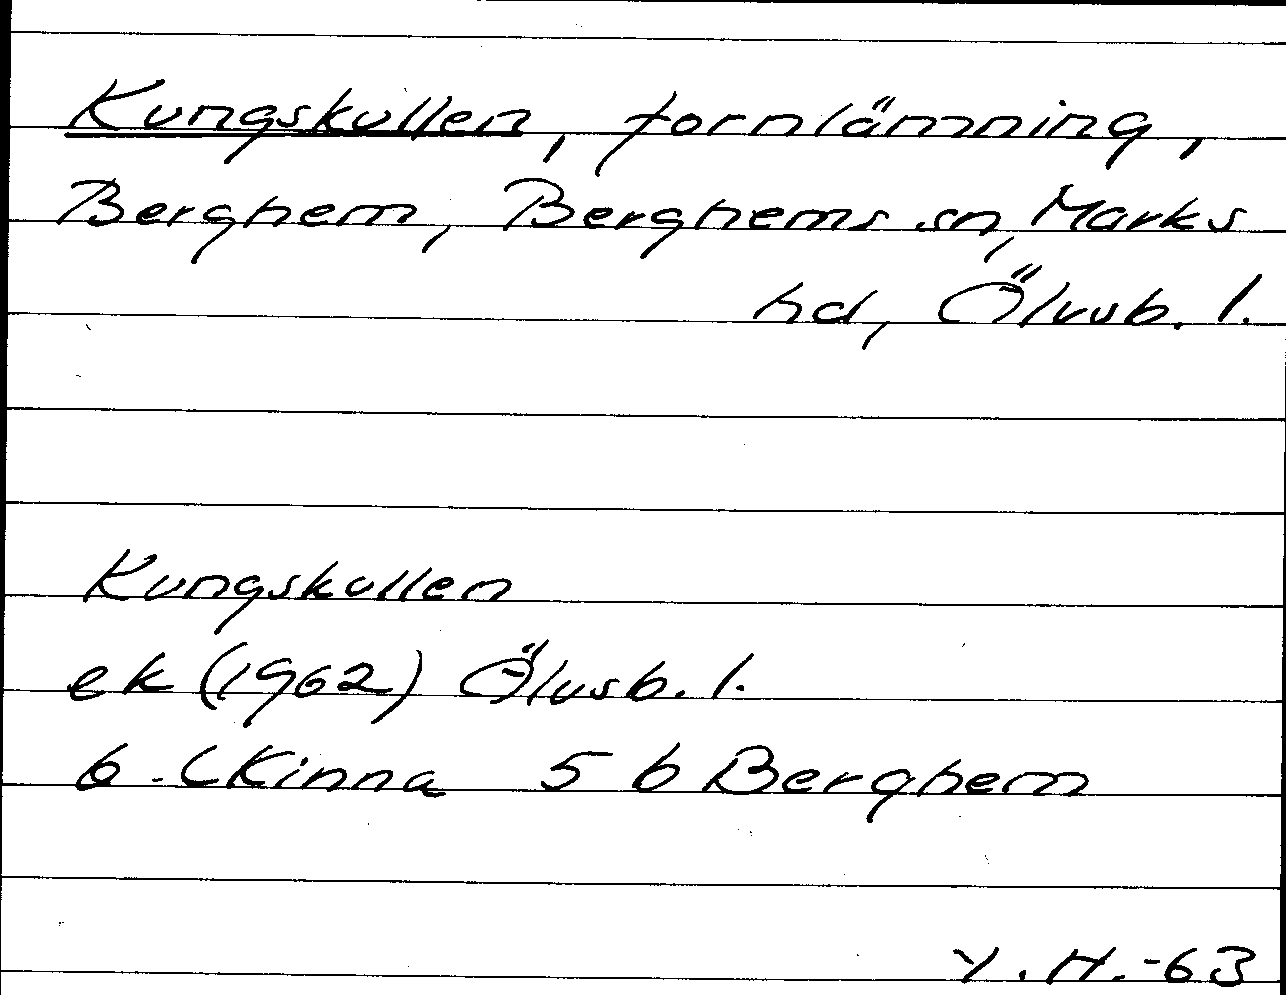 Kungskullen, fornlämning,
Berghem, Berghems sn, Marks
hd, Älvsb. l.
Kungskullen
ek (1962) Älvsb. l.
6. Kinna 5 b Berghem
Y.H.-63